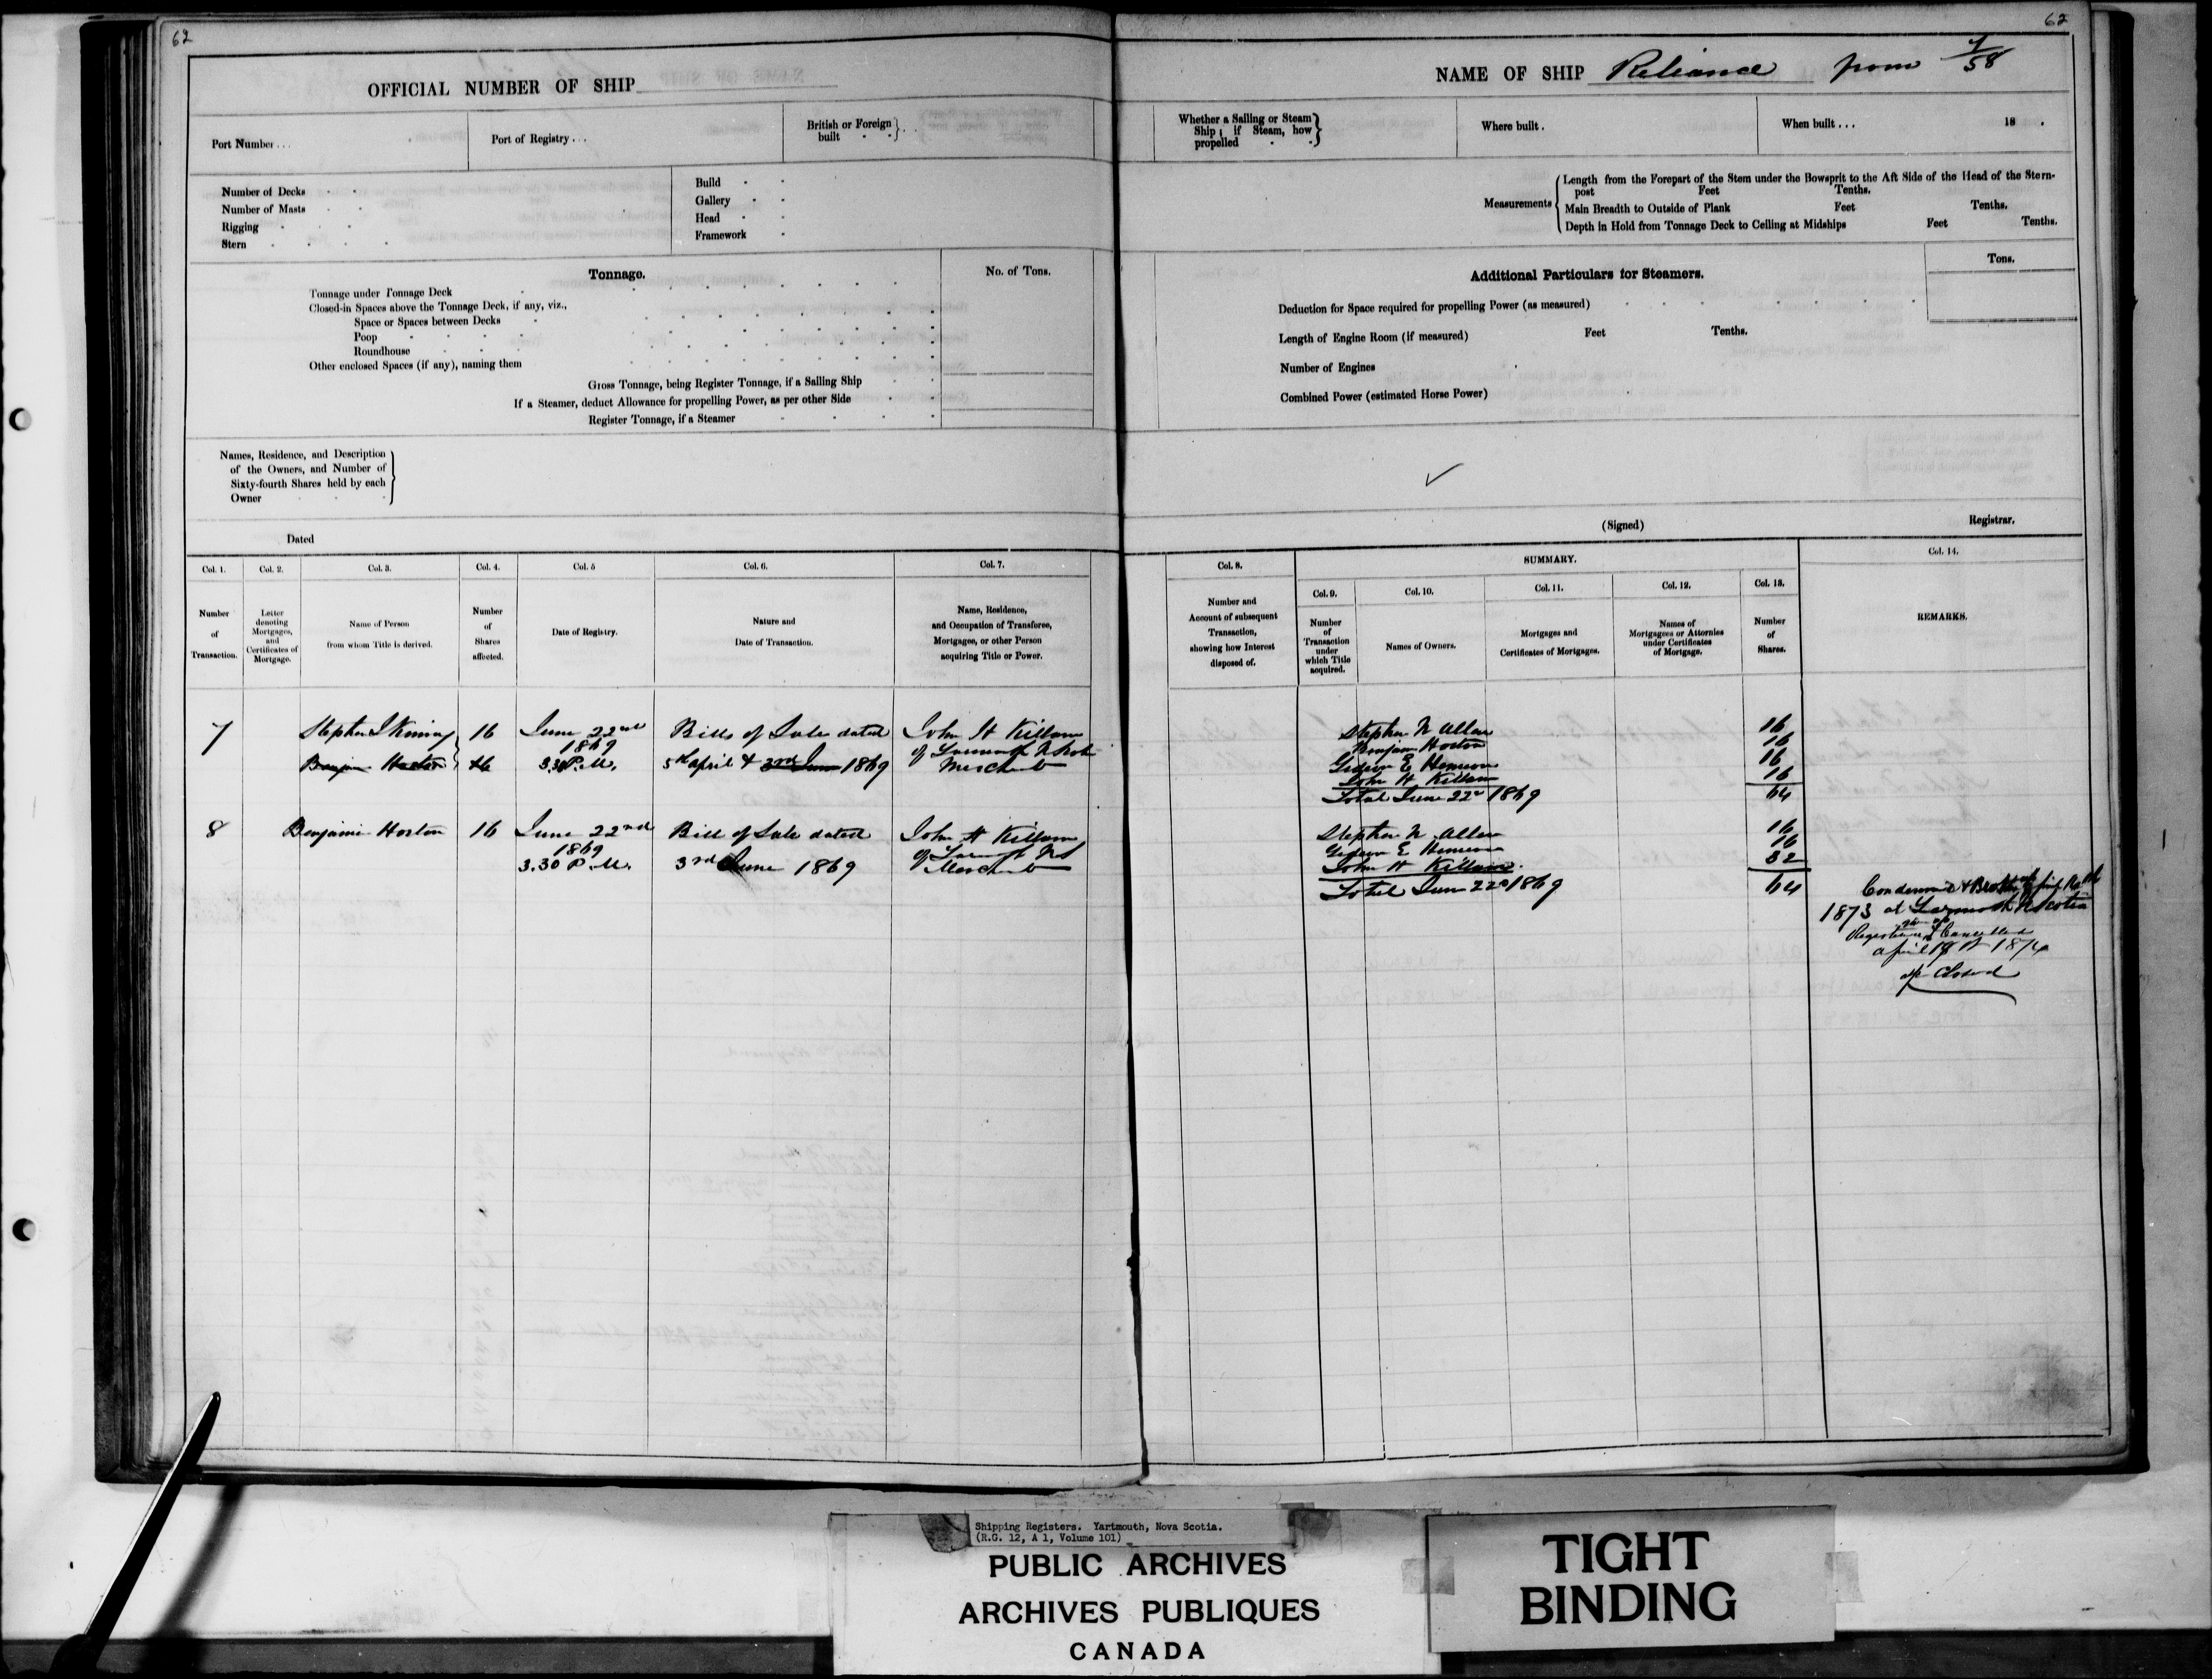 62
OFFICIAL NUMBER OF SHIP
Port Number . . .
Port of Registry . . .
British or Foreign
built
Number of Decks
Number of Masts
Rigging
Stern
Build
Gallery
Head
Framework
Tonnage.
No. of Tons.
Tonnage under Tonnage Deck
Closed-in Spaces above the Tonnage Deck, if any, viz.,
Space or Spaces between Decks
Poop
Roundhouse
Other enclosed Spaces (if any), naming them
Gross Tonnage, being Register Tonnage, if a Sailing Ship
If a Steamer, deduct Allowance for propelling Power, as per other Side
Register Tonnage, if a Steamer
Names, Residence, and Description
of the Owners, and Number of
Sixty-fourth Shares held by each
Owner
Dated
Col. 1.
Number
of
Transaction.
Col. 2.
Letter
denoting
Mortgages,
and
Certificates of
Mortgage.
Col. 3.
Name of Person
from whom Title is derived.
Col. 4.
Number
of
Shares
affected.
Col. 5
Date of Registry.
Col. 6.
Nature and
Date of Transaction.
Col. 7.
Name, Residence,
and Occupation of Transferee,
Mortgagee, or other Person
acquiring Title or Power.
7
Stephen
16
June 22nd
1869
3.30 P.M.
Bills of Sale dated
5th april & 3rd June 1869
John H Killam
of Yarmouth N Scotia
Merchant
Benjamin Horton
16
8
Benjamin Horton
16
June 22nd
1869
3.30 P.M.
Bill of Sale dated
3rd June 1869
John H Killam
of Yarmouth NS
Merchant
62
NAME OF SHIP Reliance from 7/58
Whether a Sailing or Steam
Ship; if Steam, how
propelled
Where built.
When built . . . 18 .
Measurements
Length from the Forepart of the Stem under the Bowsprit to the Aft Side of the Head of the Stern-
post Feet Tenths.
Main Breadth to Outside of Plank Feet Tenths.
Depth in Hold from Tonnage Deck to Ceiling at Midships Feet Tenths.
Additional Particulars for Steamers.
Tons.
Deduction for Space required for propelling Power (as measured)
Length of Engine Room (if measured) Feet Tenths.
Number of Engines
Combined Power (estimated Horse Power)
(Signed) Registrar.
Col. 8.
Number and
Account of subsequent
Transaction,
showing how Interest
disposed of.
SUMMARY.
Col. 9.
Number
of
Transaction
under
which Title
acquired.
Col. 10.
Names of Owners.
Col. 11.
Mortgages and
Certificates of Mortgages.
Col. 12.
Names of
Mortgagees or Attornies
under Certificates
of Mortgage.
Col. 13.
Number
of
Shares.
Col. 14.
REMARKS.
Stephen N Allen 16
Benjamin Horton 16
Gideon E 16
John H Killam 16
Total June 22nd 1869 64
Stephen N. Allen 16
Gideon E 16
John H Killam. 32
Total June 22d 1869 64
Condemned & Broken up
1873 at Yarmouth N Scotia
Cancelled
april 1874
Closed
Shipping Registers. Yartmouth, Nova Scotia.
(R.G. 12, A 1, Volume 101)
PUBLIC ARCHIVES
ARCHIVES PUBLIQUES
CANADA
TIGHT
BINDING